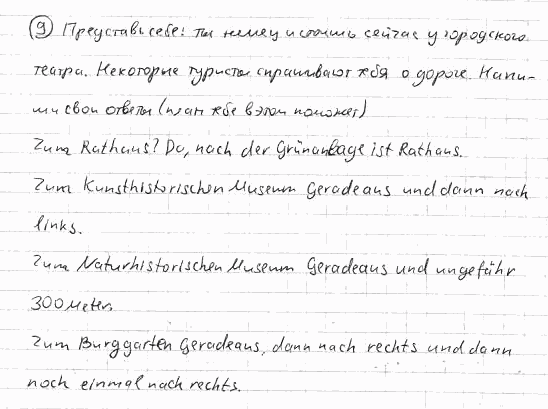 ⑨ Представь себе: ты немец и стоишь сейчас у городского
театра. Некоторые туристы спрашивают тебя о дороге. Напи-
ши свои ответы (план тебе в этом поможет)
Zum Rathaus? Da, nach der Grünanlage ist Rathaus.
Zum Kunsthistorischen Museum Geradeaus und dann nach
links.
Zum Naturhistorischen Museum Geradeaus und ungefähr
300 Meter.
Zum Burggarten Geradeaus, dann nach rechts und dann
noch einmal nach rechts.